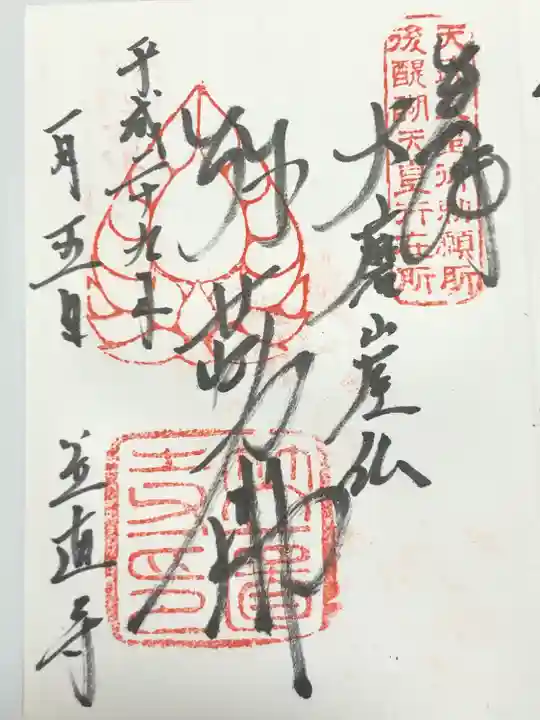 奉拝
後醍醐天皇行在所
大磨崖仏
弥勒佛
平成二十九年
一月五日
笠置寺
笠置寺印